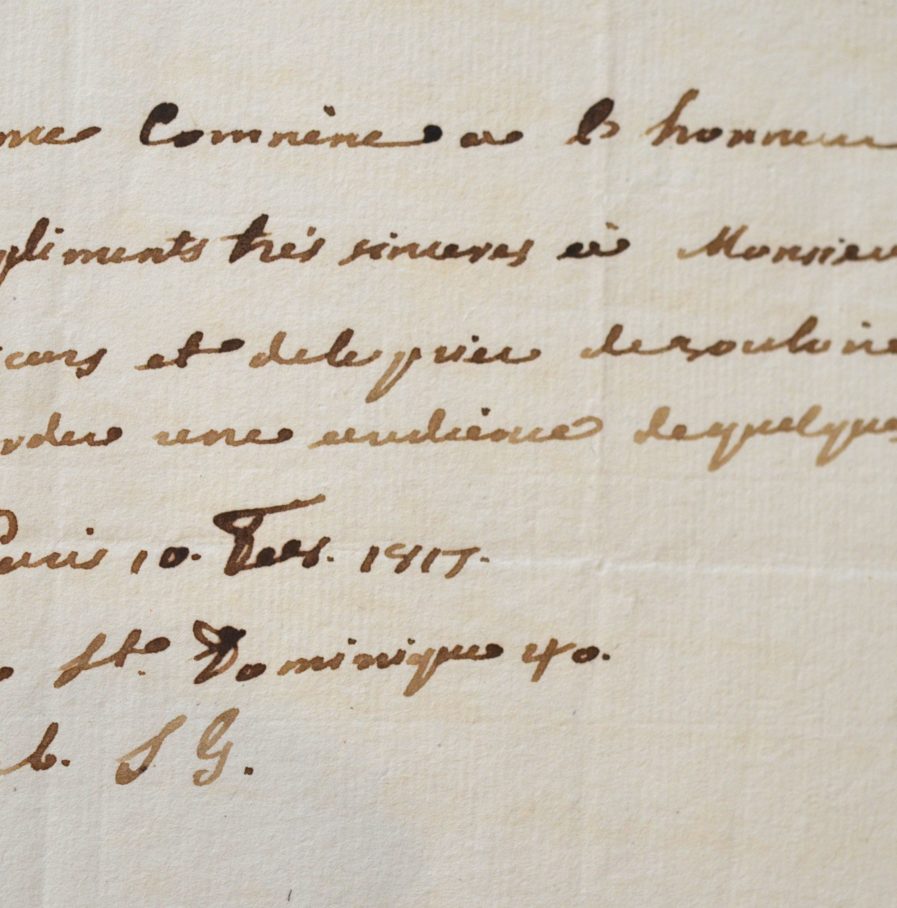 me Comnène a l'honneur
pliments très sinceres à Monsieu
et de le prier de vouloir
rder une audience de quelques
Paris 10. Fevr. 1817.
Ste. Dominique 40.
b. S G.